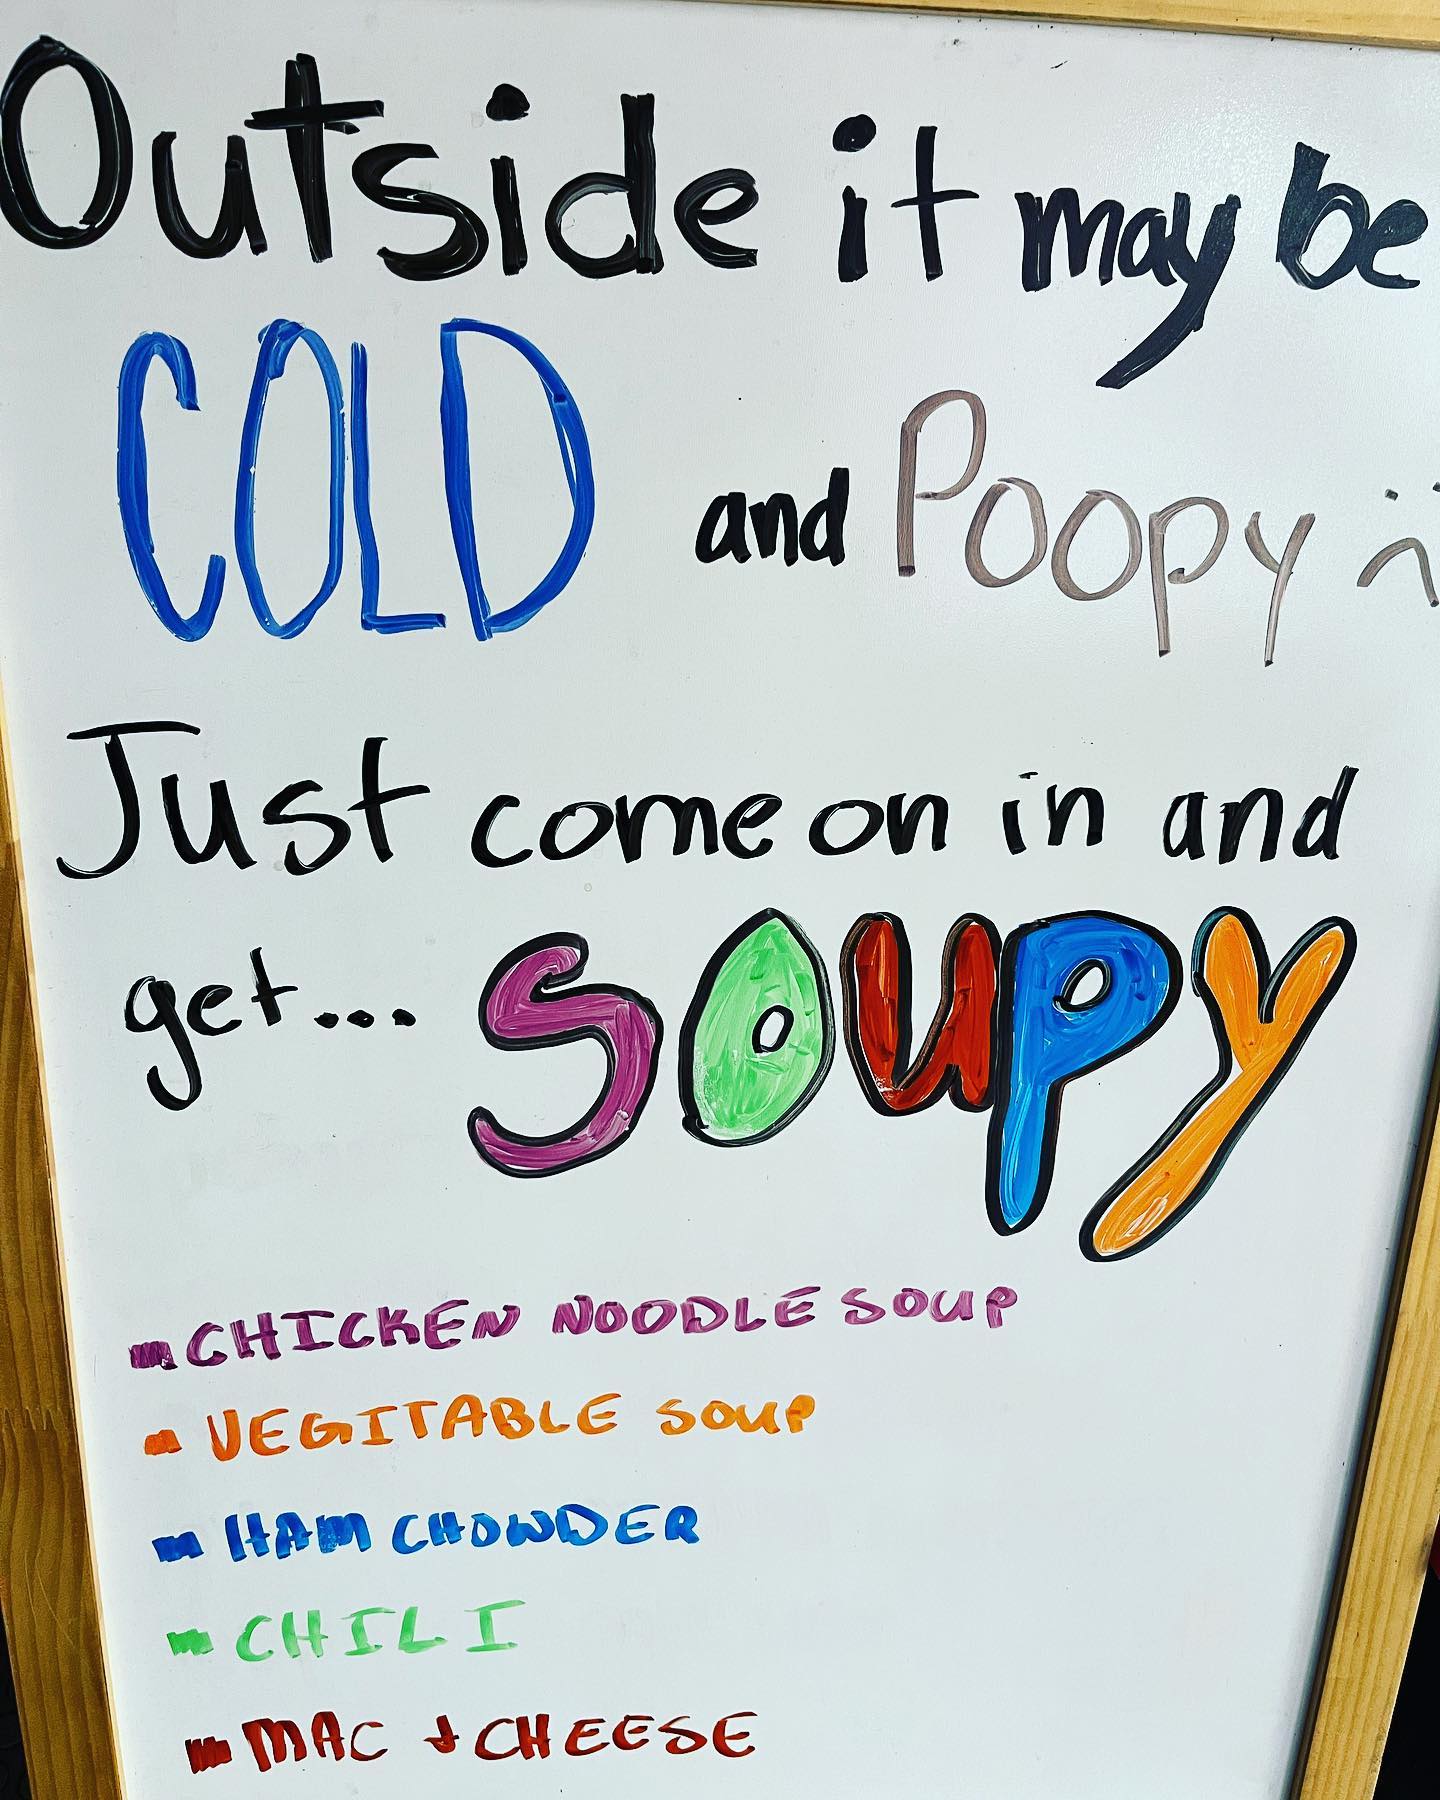 Outside it may be
COLD and Poopy :(
Just come on in and
get... SOUPY
- CHICKEN NOODLE SOUP
- VEGITABLE SOUP
- HAM CHOWDER
- CHILI
- MAC & CHEESE